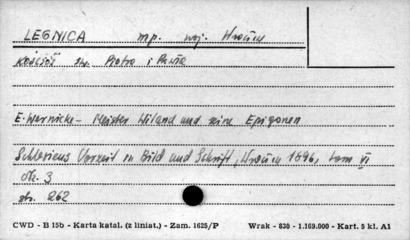 LEGNICA mp. woj. Wrocław
Kościół św. Piotra i Pawła
E. Wernicke - Meister Wiland und seine Epigonen
Schlesiens Vorzeit in Bild und Schrift, Wrocław 1896, tom VI
str. 262
CWD - B 15b - Karta katal. (z liniat.) - Zam. 1625/P Wrak - 830 - 1.169.000 - Kart. 5 kl. A1